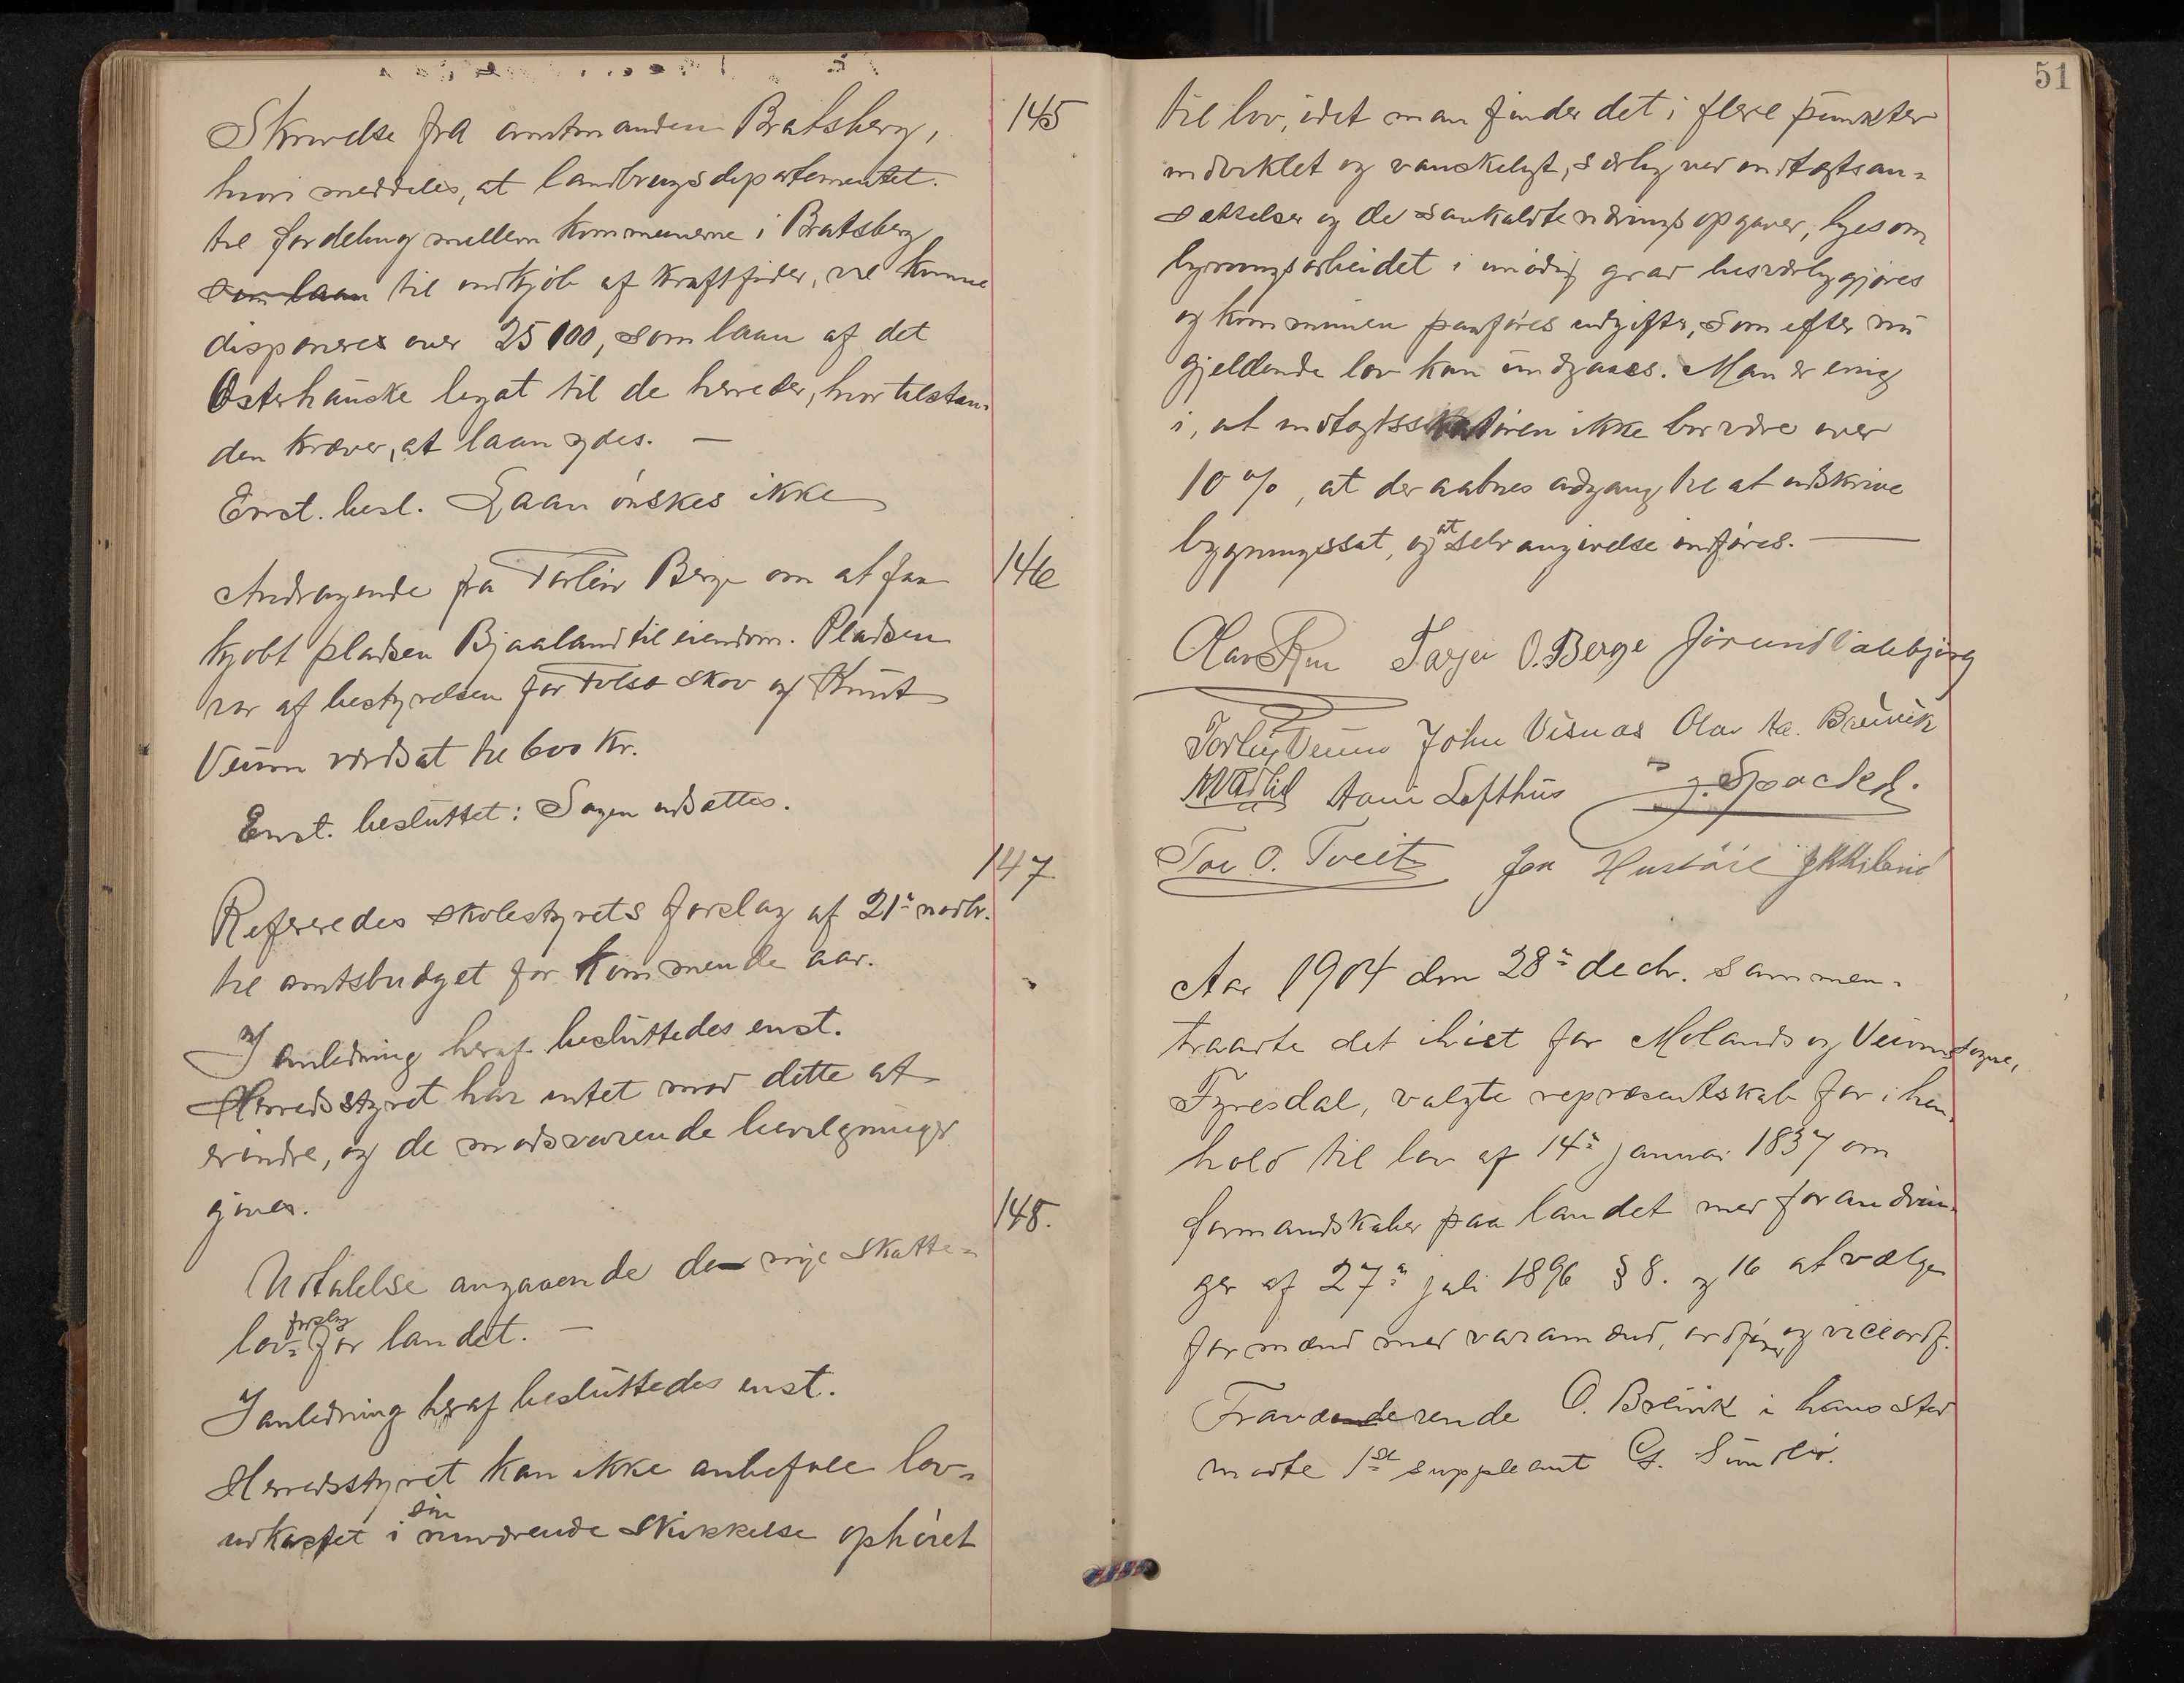 145
Skrivelse fra amtmanden Bratsberg,
hvori meddeles, at landbrugsdepartementet.
til fordeling mellem kommunerne i Bratsberg
som laan til indkjøb af kraftfoder, vil kunne
disponeres over 25100, som laan af det
Osterhauske legat til de herreder, hvor tilstan-
den kræver, at laan ydes. —
Enst. besl. Laan ønskes ikke
146
Andragende fra Torleiv Berge om at faa
kjøbt pladsen Bjaaland til eiendom. Pladsen
var af bestyrelsen for skov og Knut
Veum værdsat til 600 kr.
Enst. besluttet: Sagen udsættes.
147
Refereredes skolestyrets forslag af 21de novbr.
til amtsbudget for kommende aar.
I anledning heraf besluttedes enst.
Herredsstyret har intet mod dette at
erindre, og de modsvarende bevilgninger
gives.
148.
Udtalelse angaaende den nye skatte-
lov- forslag for landet. —
I anledning heraf besluttedes enst.
Herredsstyret kan ikke anbefale lov-
udkastet i sin nuværende skikkelse ophøiet
51
til lov, idet man finder det i flere punkter
indviklet og vanskeligt, særlig ved indtægtsan-
sættelser og de saakaldte opgaver, ligesom
ligningsarbeidet i unødig grad besværliggjøres
og kommunen paaføres udgifter, som efter nu
gjeldende lov kan undgaaes. Man er enig
i, at indtægtsskatøren ikke bør være over
10 %, at der aabnes adgang til at udskrive
bygningsskat, og at selvangivelse indføres. —
Olav Tarjei O. Berge Jørund
Torleiv Veum John Visnas Olav Aa. Breivik
Aani Lofthus
Tor O. Tveit Jon
Aar 1904 den 28de decbr. sammen-
traadte det ihiet for Molands og Veumsogne,
Fyresdal, valgte repræsentskab for i hen-
hold til lov af 14de januar 1837 om
formandskaber paa landet med forandrin-
ger af 27de juli 1896 § 8. og 16 at vælge
formænd med varamænd, ordfører og viceordf.
Fraværende O. Breivik i hans sted
mødte 1ste suppleant G. Sundli.